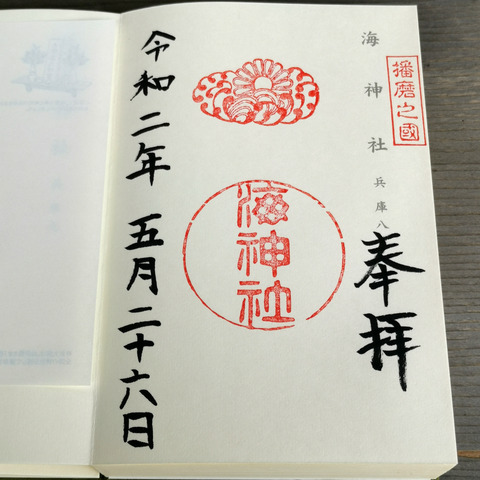 播磨之國
海神社 兵庫八
奉拝
海神社
令和二年 五月二十六日